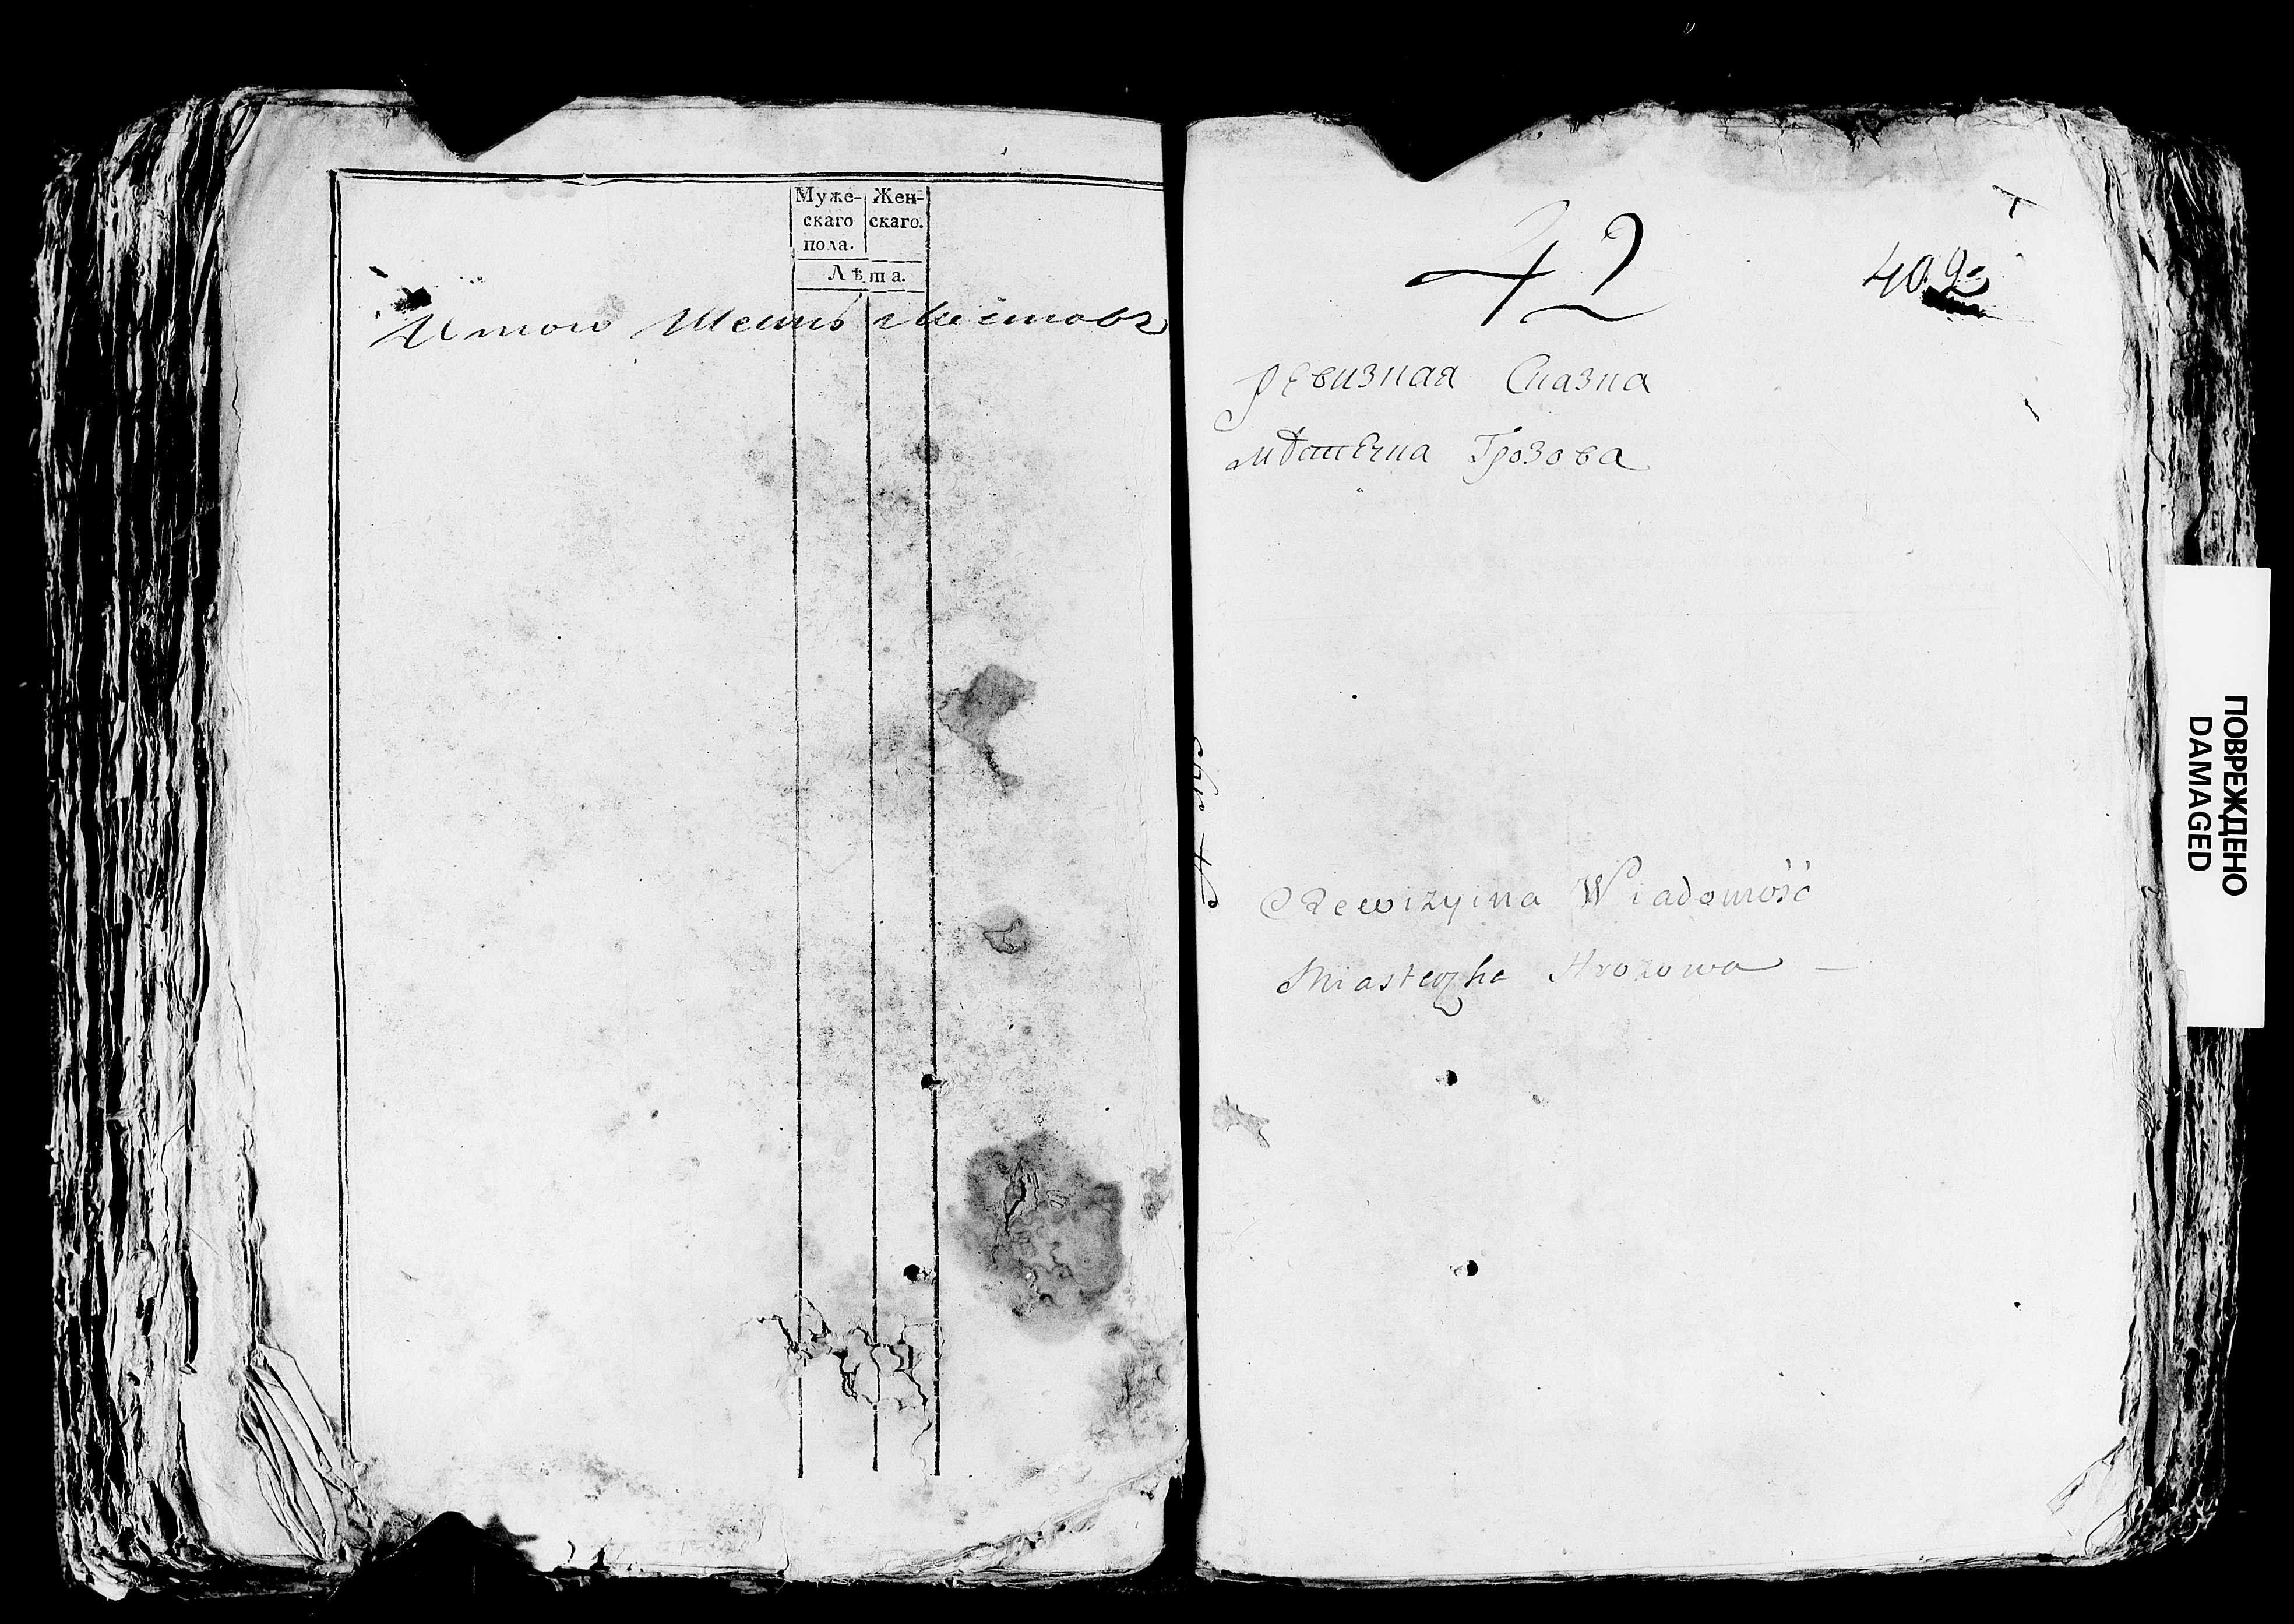 Муже- Жен-
скаго скаго.
пола.
Лѣта.
Итого Шесть листовъ
42
409
Ревизная Сказка
мѣстечка Грозова
Rewizyina Wiadomość
Miasteczka Hrozowa —
ПОВРЕЖДЕНО
DAMAGED